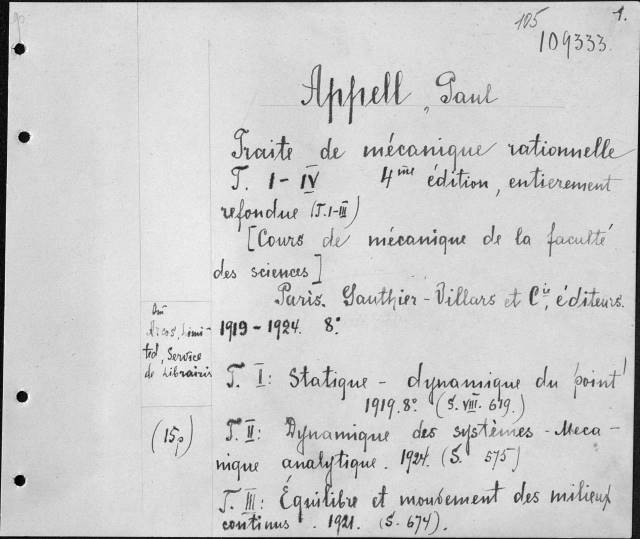 105 1.
109333.
Appell, Paul
Traite de mécanique rationnelle
T. I-IV 4me édition, entierement
refondue (T. I-III)
[Cours de mécanique de la faculté
des sciences]
Paris. Gauthier-Villars et Cie, éditeurs.
1919-1924. 8°
Arcos, Limi-
ted, Service
de Librairis
T. I: Statique - dynamique du point
1919. 8° (S. VIII. 619.)
(15p)
T. II: Dynamique des systèmes - Meca-
nique analytique. 1924. (S. 575)
T. III: Équilibre et mouvement des milieux
continus. 1921. (S. 674).